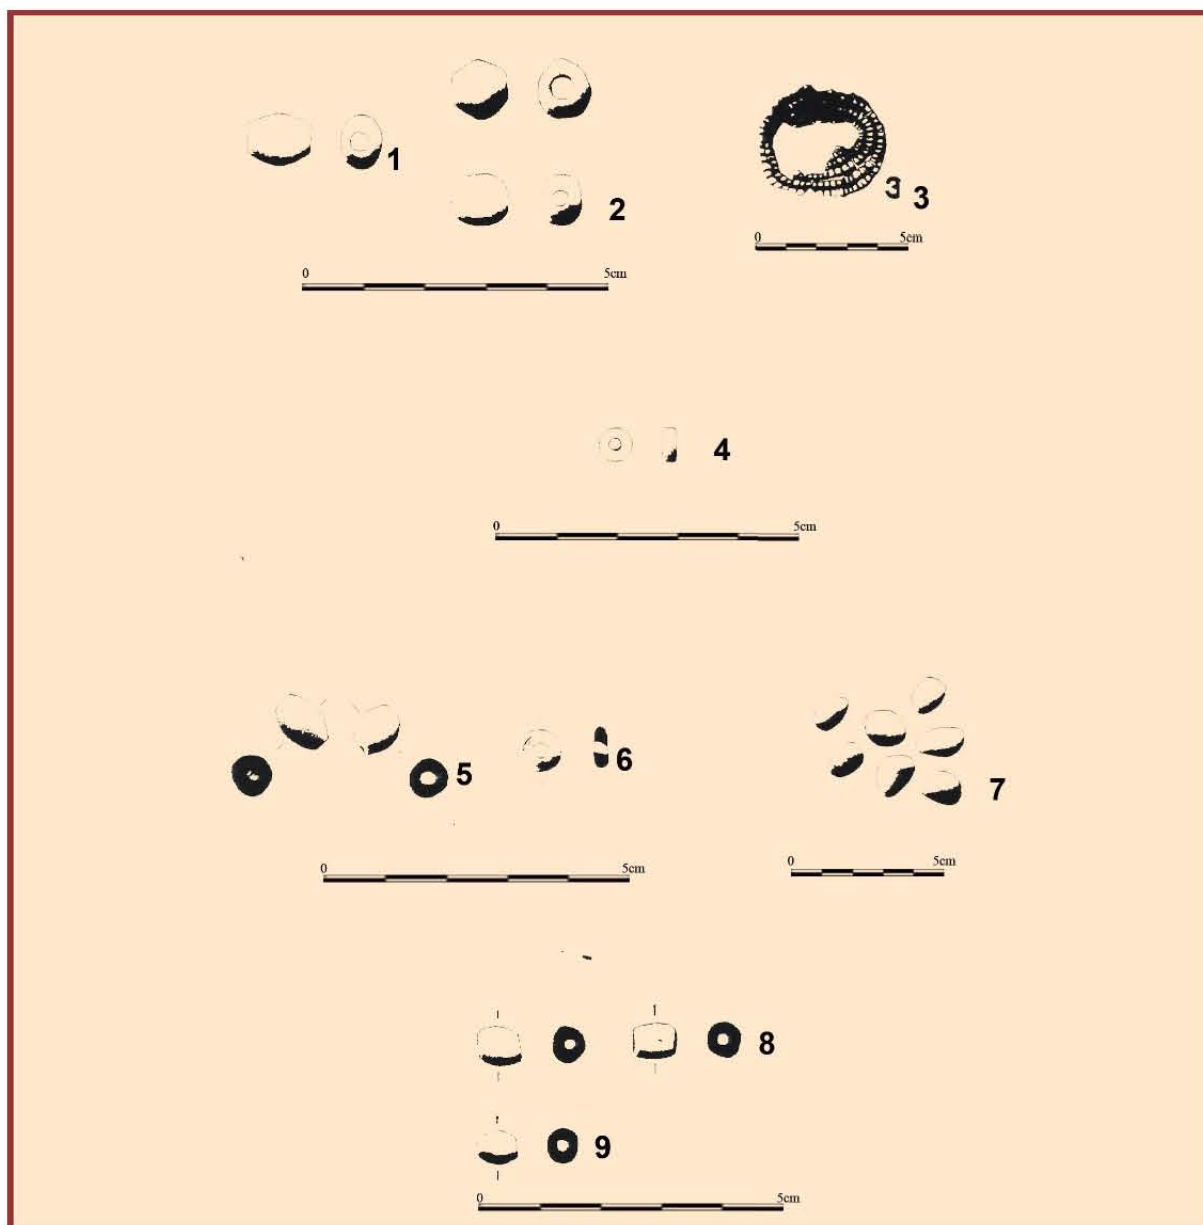 1
2
3 3
0 5cm
0 5cm
4
0 5cm
5
6
7
0 5cm
0 5cm
8
9
0 5cm